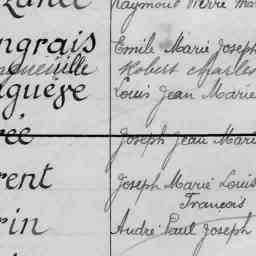 Raymond Pierre Mar
ngrais Emile Marie Joseph
Robert Charles
Louis Jean Marie
rée Joseph Jean Mari
rent Joseph Marie Louis
François
rin André Paul Joseph